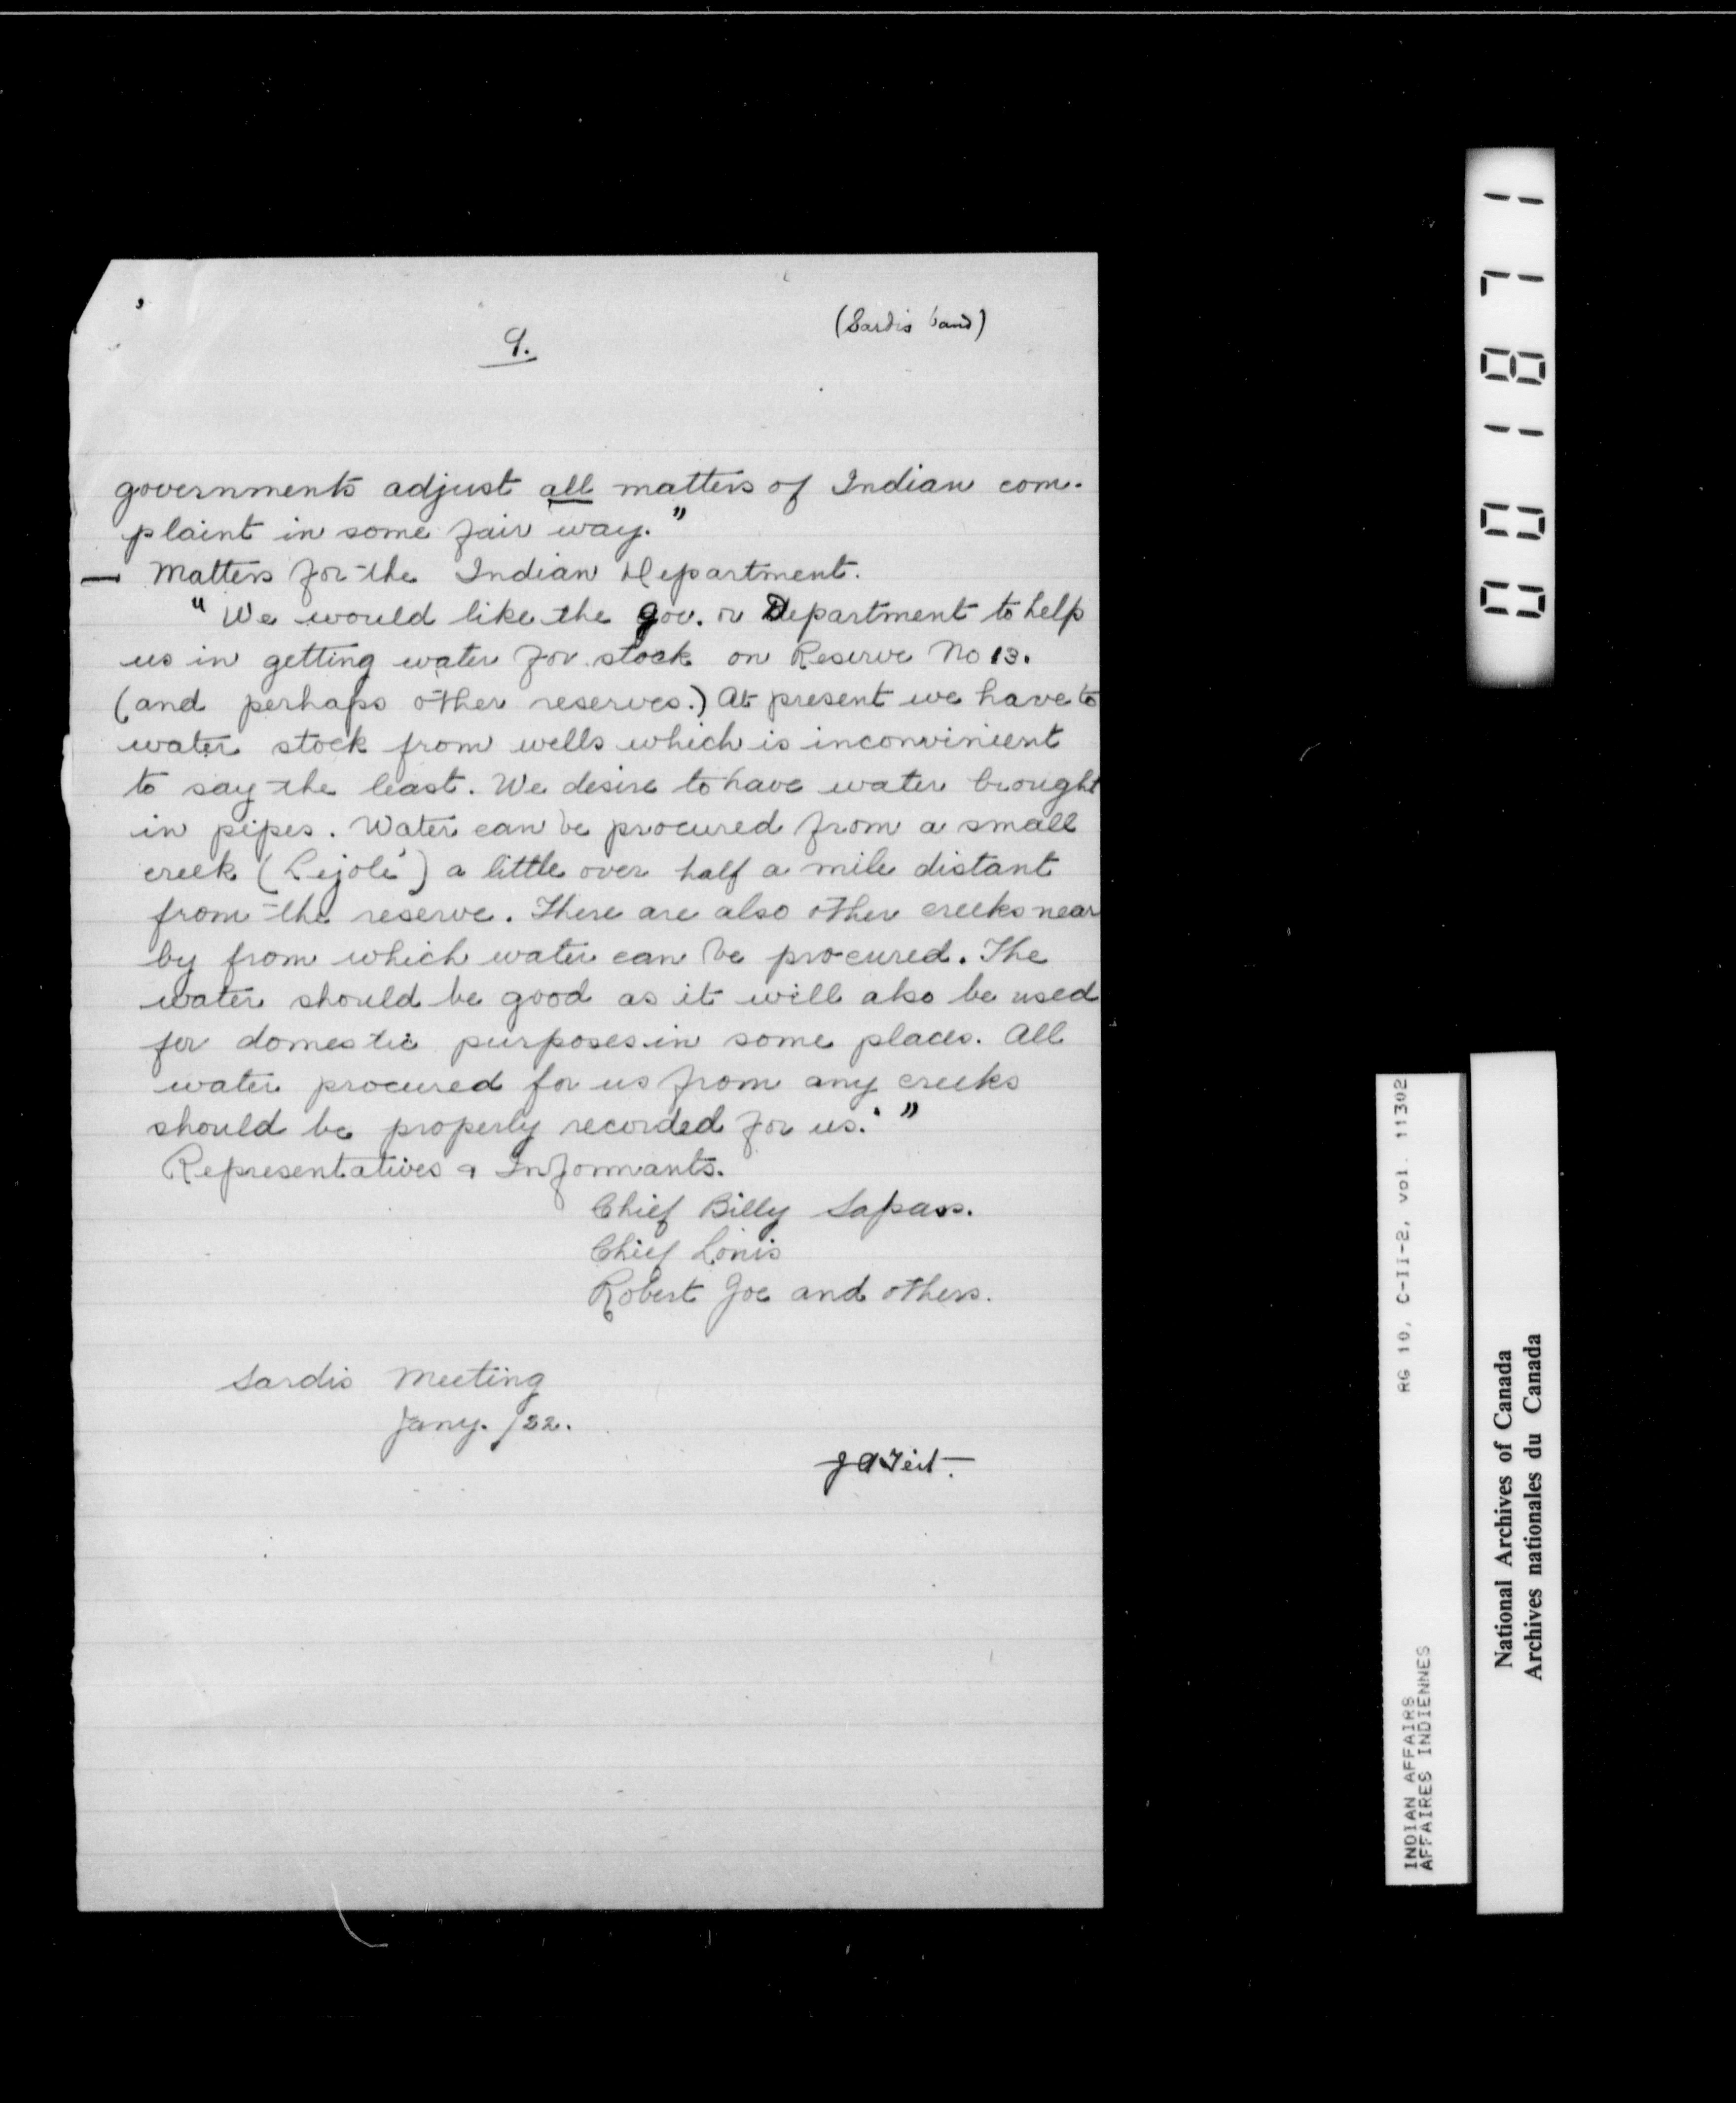 9.
(Sardis band)
governments adjust all matters of Indian com-
plaint in some fair way."
— Matters for the Indian Department.
"We would like the gov. or Department to help
us in getting water for stock on Reserve No 13.
(and perhaps other reserves.) At present we have to
water stock from wells which is inconvinient
to say the least. We desire to have water brought
in pipes. Water can be procured from a small
creek (Lejolé) a little over half a mile distant
from the reserve. There are also other creeks near
by from which water can be procured. The
water should be good as it will also be used
for domestic purposes in some places. All
water procured for us from any creeks
should be properly recorded for us."
Representatives & Informants.
Chief Billy Sapass.
Chief Louis
Robert Joe and others.
Sardis Meeting
Jany. /22.
J A Teit.
001871
RG 10, C-II-2, vol. 11302
INDIAN AFFAIRS
AFFAIRES INDIENNES
National Archives of Canada
Archives nationales du Canada